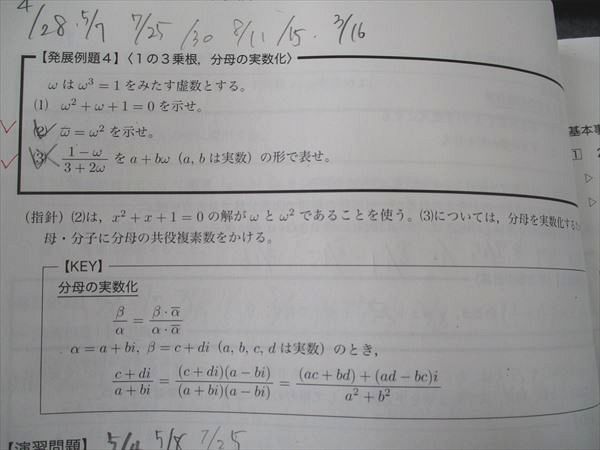 4/28. 5/7 7/25 /30 8/11 /15. 3/16
【発展例題4】〈1の3乗根，分母の実数化〉
ωはω³＝1をみたす虚数とする。
(1) ω²＋ω＋1＝0を示せ。
(2) ω̅＝ω²を示せ。
(3) (1－ω)/(3＋2ω) をa＋bω（a, bは実数）の形で表せ。
基本事
1 2
（指針）(2)は，x²＋x＋1＝0の解がωとω²であることを使う。(3)については，分母を実数化する
母・分子に分母の共役複素数をかける。
【KEY】
分母の実数化
β/α＝(β・α̅)/(α・α̅)
α＝a＋bi, β＝c＋di（a, b, c, dは実数）のとき，
(c＋di)/(a＋bi)＝((c＋di)(a－bi))/((a＋bi)(a－bi))＝((ac＋bd)＋(ad－bc)i)/(a²＋b²)
【演習問題】 5/4 5/8 7/25